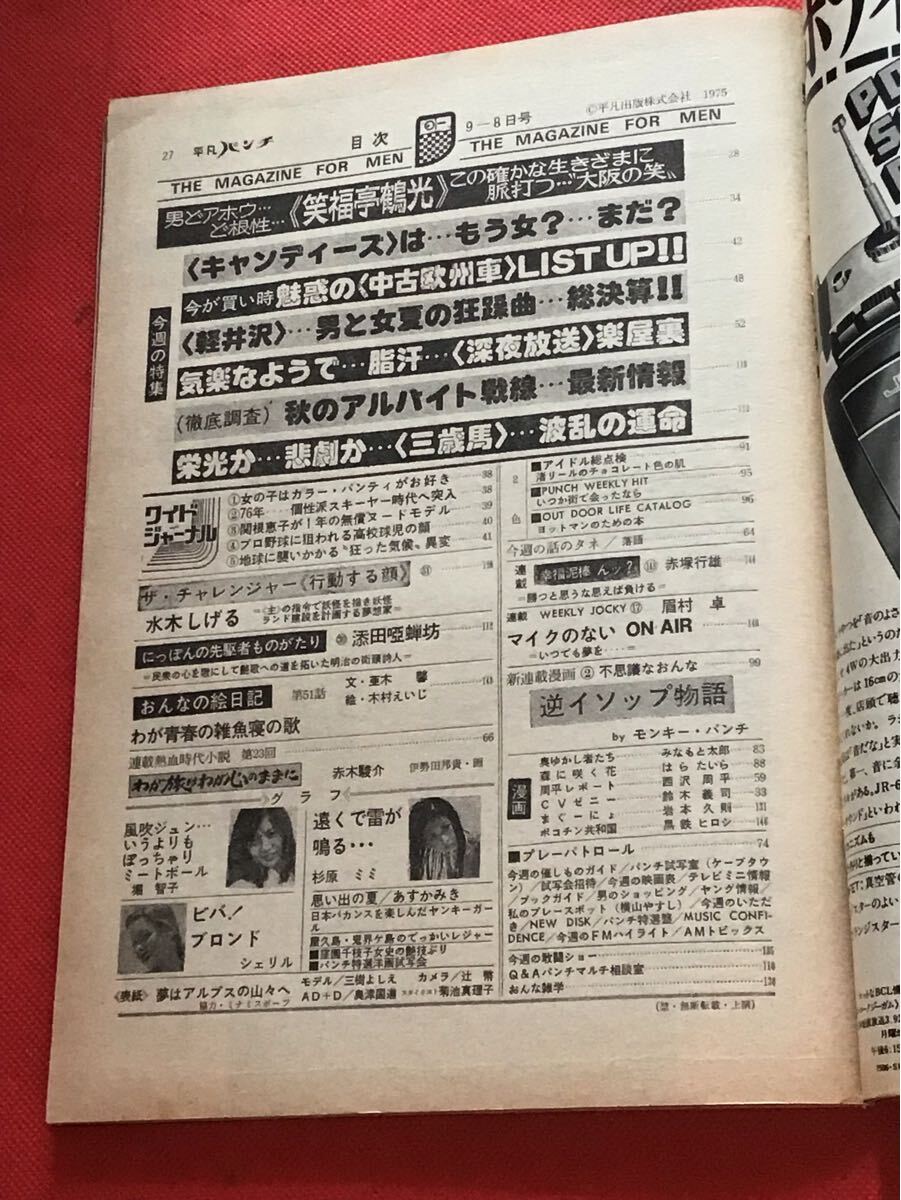 ©平凡出版株式会社 1975
27 平凡パンチ 目次 9−8日号
THE MAGAZINE FOR MEN THE MAGAZINE FOR MEN
今週の特集
男どアホウ…ど根性…《笑福亭鶴光》この確かな生きざまに脈打つ…〝大阪の笑〟 28
〈キャンディーズ〉は…もう女?…まだ? 34
今が買い時 魅惑の〈中古欧州車〉LIST UP!! 42
〈軽井沢〉…男と女夏の狂躁曲…総決算!! 48
気楽なようで…脂汗…〈深夜放送〉楽屋裏 52
(徹底調査) 秋のアルバイト戦線…最新情報
栄光か…悲劇か…〈三歳馬〉…波乱の運命
ワイドジャーナル
①女の子はカラー・パンティがお好き 38
②76年……個性派スキーヤー時代へ突入 38
③関根恵子が1年の無償ヌードモデル 39
④プロ野球に狙われる高校球児の顔 40
⑤地球に襲いかかる〝狂った気候〟異変 41
ザ・チャレンジャー《行動する顔》
水木しげる =〈主〉の指令で妖怪を描き妖怪ランド建設を計画する夢想家=
にっぽんの先駆者ものがたり 添田啞蟬坊 112
=民衆の心を歌にして艶歌への道を拓いた明治の街頭詩人=
おんなの絵日記 第51話 文・亜木 馨
絵・木村えいじ
わが青春の雑魚寝の歌
連載熱血時代小説 第23回 66
わが旅はわが心のままに 赤木駿介 伊勢田邦貴・画
グラフ
風吹ジュン…
いうよりも
ぽっちゃり
ミートボール
堀 智子
遠くで雷が
鳴る…
杉原 ミミ
ビバ!
ブロンド
シェリル
思い出の夏/あすかみき
日本バカンスを楽しんだヤンキーガール
屋久島・鬼界ケ島のでっかいレジャー
■窪園千枝子女史の艶技ぶり
■パンチ特選洋画試写会
〈表紙〉夢はアルプスの山々へ
協力・ミナミスポーツ
モデル/三樹よしえ カメラ/辻 幣
AD+D/奥津国道 菊池真理子
2色
■アイドル総点検 91
渚リールのチョコレート色の肌
■PUNCH WEEKLY HIT 95
いつか街で会ったなら
■OUT DOOR LIFE CATALOG 96
ヨットマンのための本
今週の話のタネ/落語 64
連載 幸福泥棒 んッ? ⑩ 赤塚行雄
=勝つと思うな思えば負ける=
連載 WEEKLY JOCKY ⑰ 眉村 卓
マイクのない ON AIR
=いつでも夢を……=
新連載漫画 ② 不思議なおんな 99
逆イソップ物語
by モンキー・パンチ
漫画
奥ゆかし者たち みなもと太郎 83
森に咲く花 はらたいら 88
周平レポート 西沢周平 59
CVゼニー 鈴木義司 33
まぐーにょ 岩本久則 131
ポコチン共和国 黒鉄ヒロシ 146
■プレーパトロール 74
今週の催しものガイド/パンチ試写室(ケープタウン)/試写会招待/今週の映画表/テレビミニ情報
/ブックガイド/男のショッピング/ヤング情報/
私のプレースポット(横山やすし)/今週のいただき/NEW DISK/パンチ特選盤/MUSIC CONFI-
DENCE/今週のFMハイライト/AMトピックス
今週の敢闘ショー
Q&Aパンチマルチ相談室 110
おんな雑学 130
(禁・無断転載・上演)